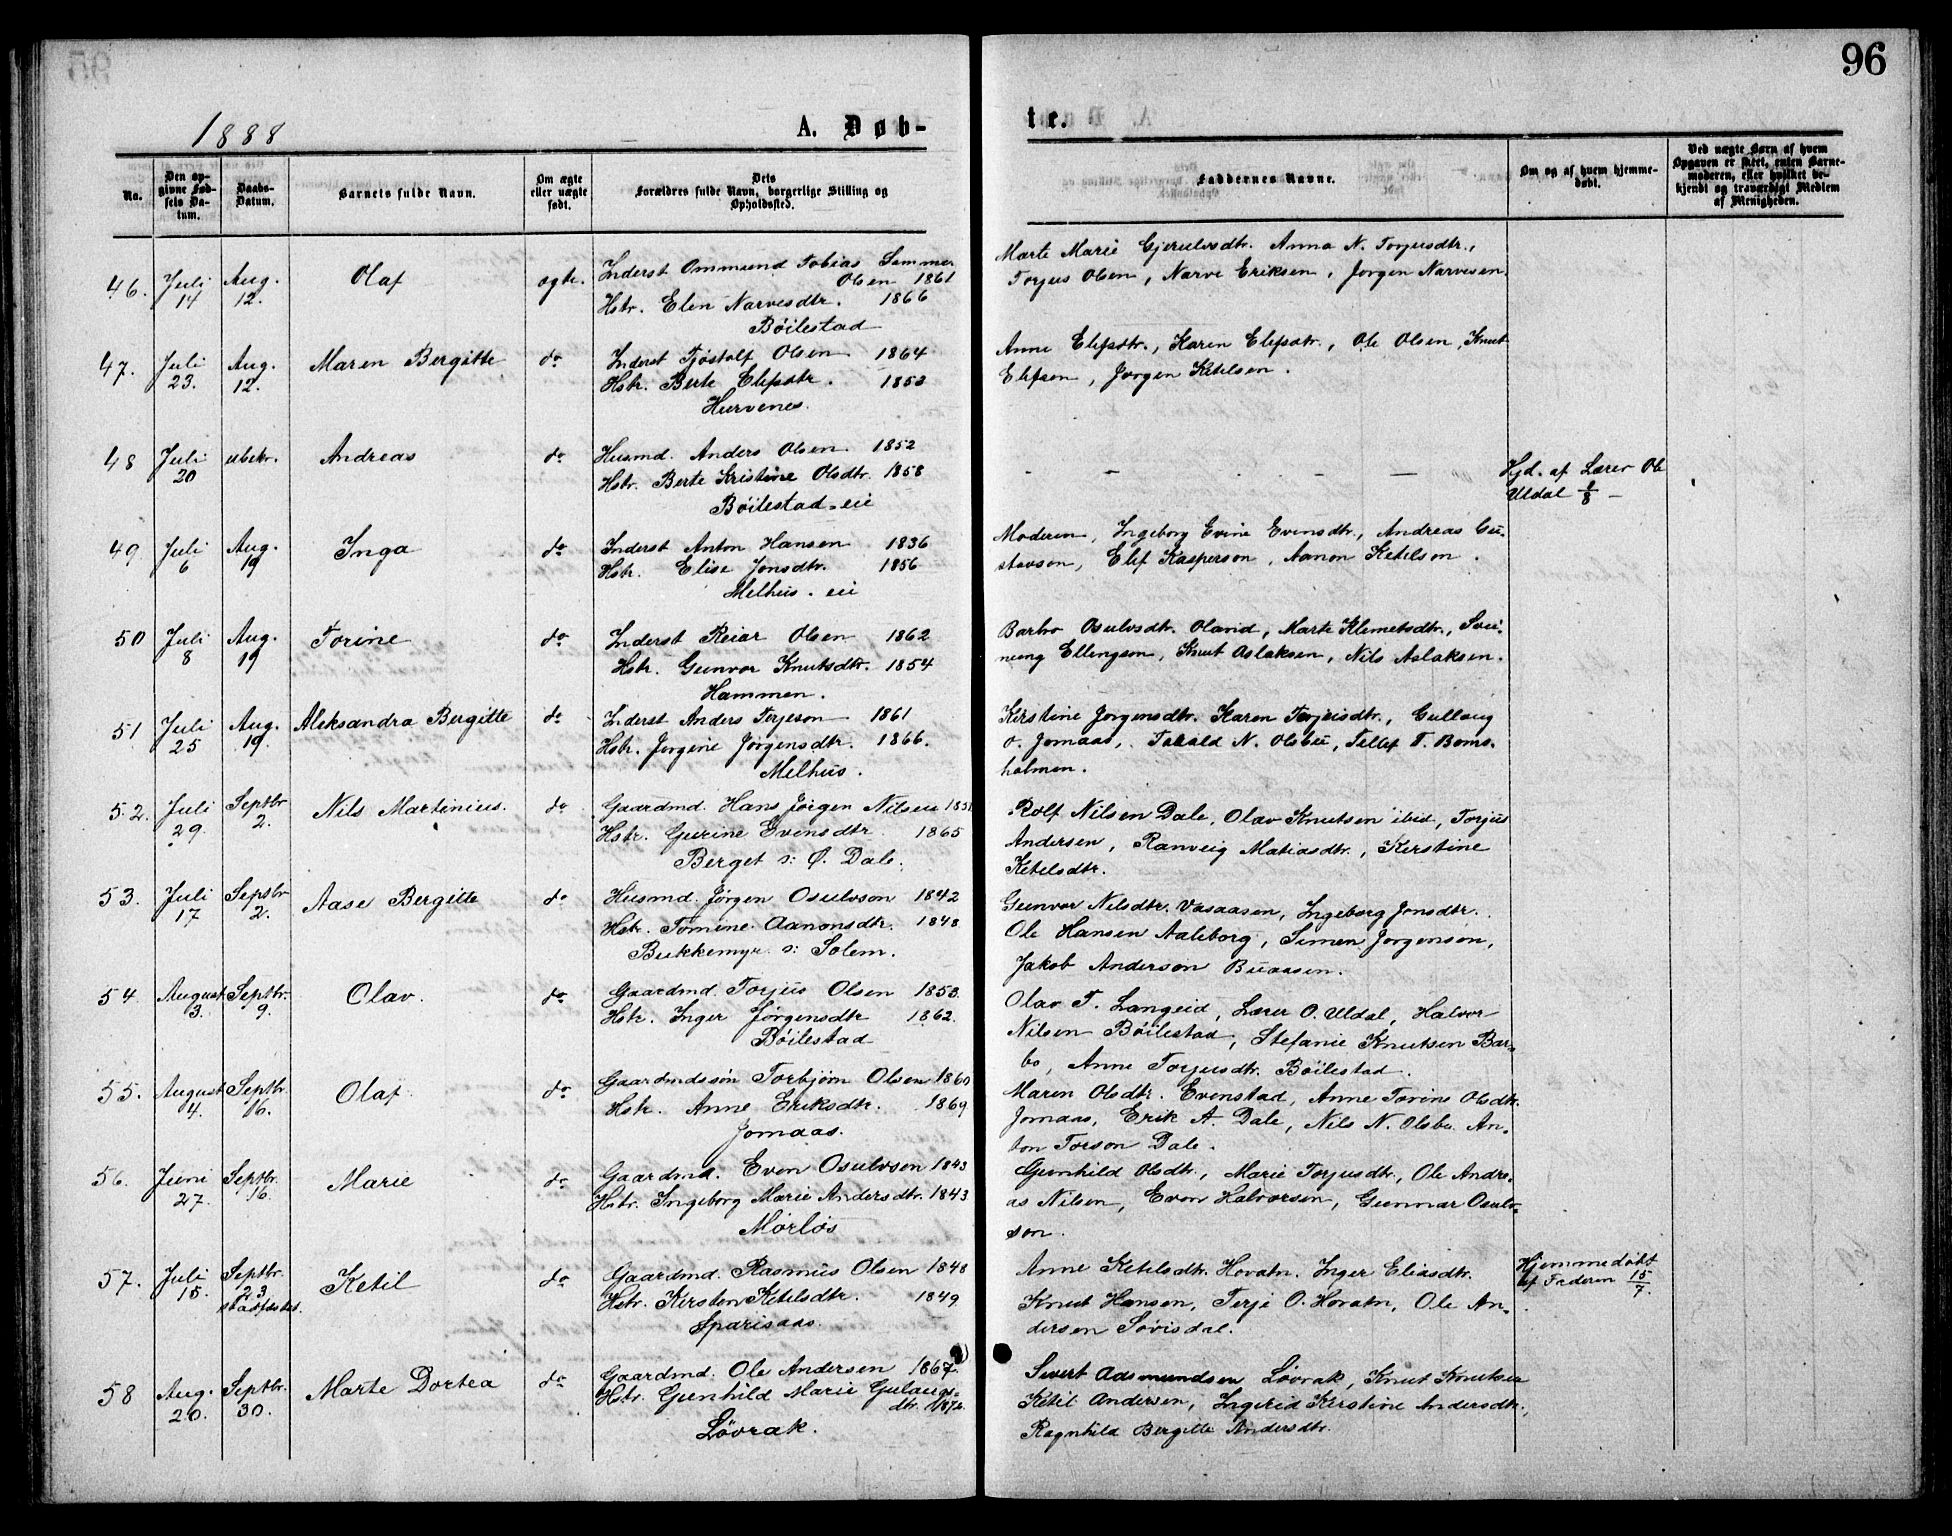 96
1888
A. Døb-
te.
No.
Den op-
givne Fød-
sels Da-
tum.
Daabs-
Datum.
Barnets fulde Navn.
Om ægte
eller uægte
født.
Dets
Forældres fulde Navn, borgerlige Stilling og
Opholdssted.
Faddernes Navne.
Om og af hvem hjemme-
døbt.
Ved uægte Børn af hvem
Opgaven er skeet, enten Barne-
moderen, eller hvilket be-
kjendt og troværdigt Medlem
af Menigheden.
46. Juli 14 Aug. 12. Olaf ægte. Inderst Ommund Tobias Sommer
Olsen 1861
Hstr. Elen Narvesdtr. 1866
Bøilestad
Marte Marie Gjerulvsdtr. Anna N. Torjusdtr.,
Torjus Olsen, Narve Eriksen, Jørgen Narvesen.
47. Juli 23. Aug. 12. Maren Bergitte do Inderst Tjøstolf Olsen 1864
Hstr. Berte Elefsdtr. 1853
Hurvenes.
Anne Elefsdtr., Karen Elefsdtr., Ole Olsen, Knut
Elefsen, Jørgen Ketilsen.
48 Juli 20 ubekr. Andreas do Husmd. Anders Olsen 1852
Hstr. Berte Kristine Olsdtr. 1858
Bøilestad-eie
- - - - -
Hjd. af Lærer Ole
Uldal 1/8 -
49. Juli 6 Aug. 19 Inga do Inderst Anton Hansen 1836
Hstr. Elise Jonsdtr. 1856
Melhus-eie
Moderen, Ingeborg Evine Evensdtr., Andreas Gu-
stavson, Elef Kasperson, Aanon Ketilson.
50 Juli 8 Aug. 19 Torine do Inderst Reiar Olsen 1862
Hstr. Gunvor Knutsdtr. 1854
Hammen.
Barbro Osulvsdtr. Oland, Marte Klemetsdtr., Svei-
nung Ellengson, Knut Aslaksen, Nils Aslaksen.
51 Juli 25 Aug. 19. Aleksandra Bergitte do Inderst Anders Terjeson 1861
Hstr. Jørgine Jørgensdtr. 1866.
Melhus.
Kirstine Jørgensdtr. Karen Terjeisdtr., Gullaug
O. Jomaas, Torald N. Olsbu, Tellef T. Boms-
holmen.
52. Juli 29. Septbr 2. Nils Martinius. do Gaardmd. Hans Jørgen Nilsen 1851
Hstr. Gurine Evensdtr. 1865
Berget s: Ø. Dale.
Rolf Nilsen Dale, Olav Knutsen ibid, Torjus
Andersen, Ranveig Matiasdtr., Kerstine
Ketilsdtr.
53. Juli 17 Septbr 2. Aase Bergitte do Husmd. Jørgen Osulvson 1842
Hstr. Tomine Aanonsdtr. 1848
Bukkemyr s: Solem.
Gunvor Nilsdtr. Vasaasen, Ingeborg Jonsdtr.
Ole Hansen Aaleborg, Simen Jørgensen,
Jakob Anderson Buaasen.
54. August 3. Septbr. 9. Olav. do Gaardmd. Torjus Olsen 1853
Hstr. Inger Jørgensdtr 1862.
Bøilestad
Olav T. Langeid, Lærer O. Uldal, Halvor
Nilsen Bøilestad, Stefanie Knutsen Bar-
bo, Anne Torjusdtr. Bøilestad.
55. August 4. Septbr. 16. Olaf do Gaardmdssøn Torbjørn Olsen 1860
Hstr. Anne Eriksdtr. 1869
Jomaas.
Maren Olsdtr. Evenstad, Anne Torine Olsdtr.
Jomaas, Erik A. Dale, Nils N. Olsbu. An-
ton Torson Dale.
56. Juni 27. Septbr. 16. Marie do Gaardmd. Even Osulvson 1843
Hstr. Ingeborg Marie Andersdtr. 1843
Mørløs
Gunhild Olsdtr., Marie Torjusdtr., Ole Andre-
as Nilsen, Even Halvorsen, Gunnar Osulv-
son.
57. Juli 15. Septbr. 23 stadfæstet. Ketil do Gaardmd. Rasmus Olsen 1848
Hstr. Kirsten Ketilsdtr. 1849
Sparisaas.
Anne Ketilsdtr. Hovatn. Inger Eliasdtr.
Knut Hansen, Terje O. Hovatn, Ole An-
dersen Søvisdal.
Hjemmedøbt
af Faderen 15/7.
58 Aug. 20. Septbr. 30. Marte Dortea do Gaardmd. Ole Andersen 1867
Hstr. Gunhild Marie Gulaugs-
dtr.
Løvrak.
Sivert Aasmundsen Løvrak, Knut Knutsen
Ketil Andersen, Ingerid Kirstine Andersdtr.,
Ragnhild Bergitte Andersdtr.